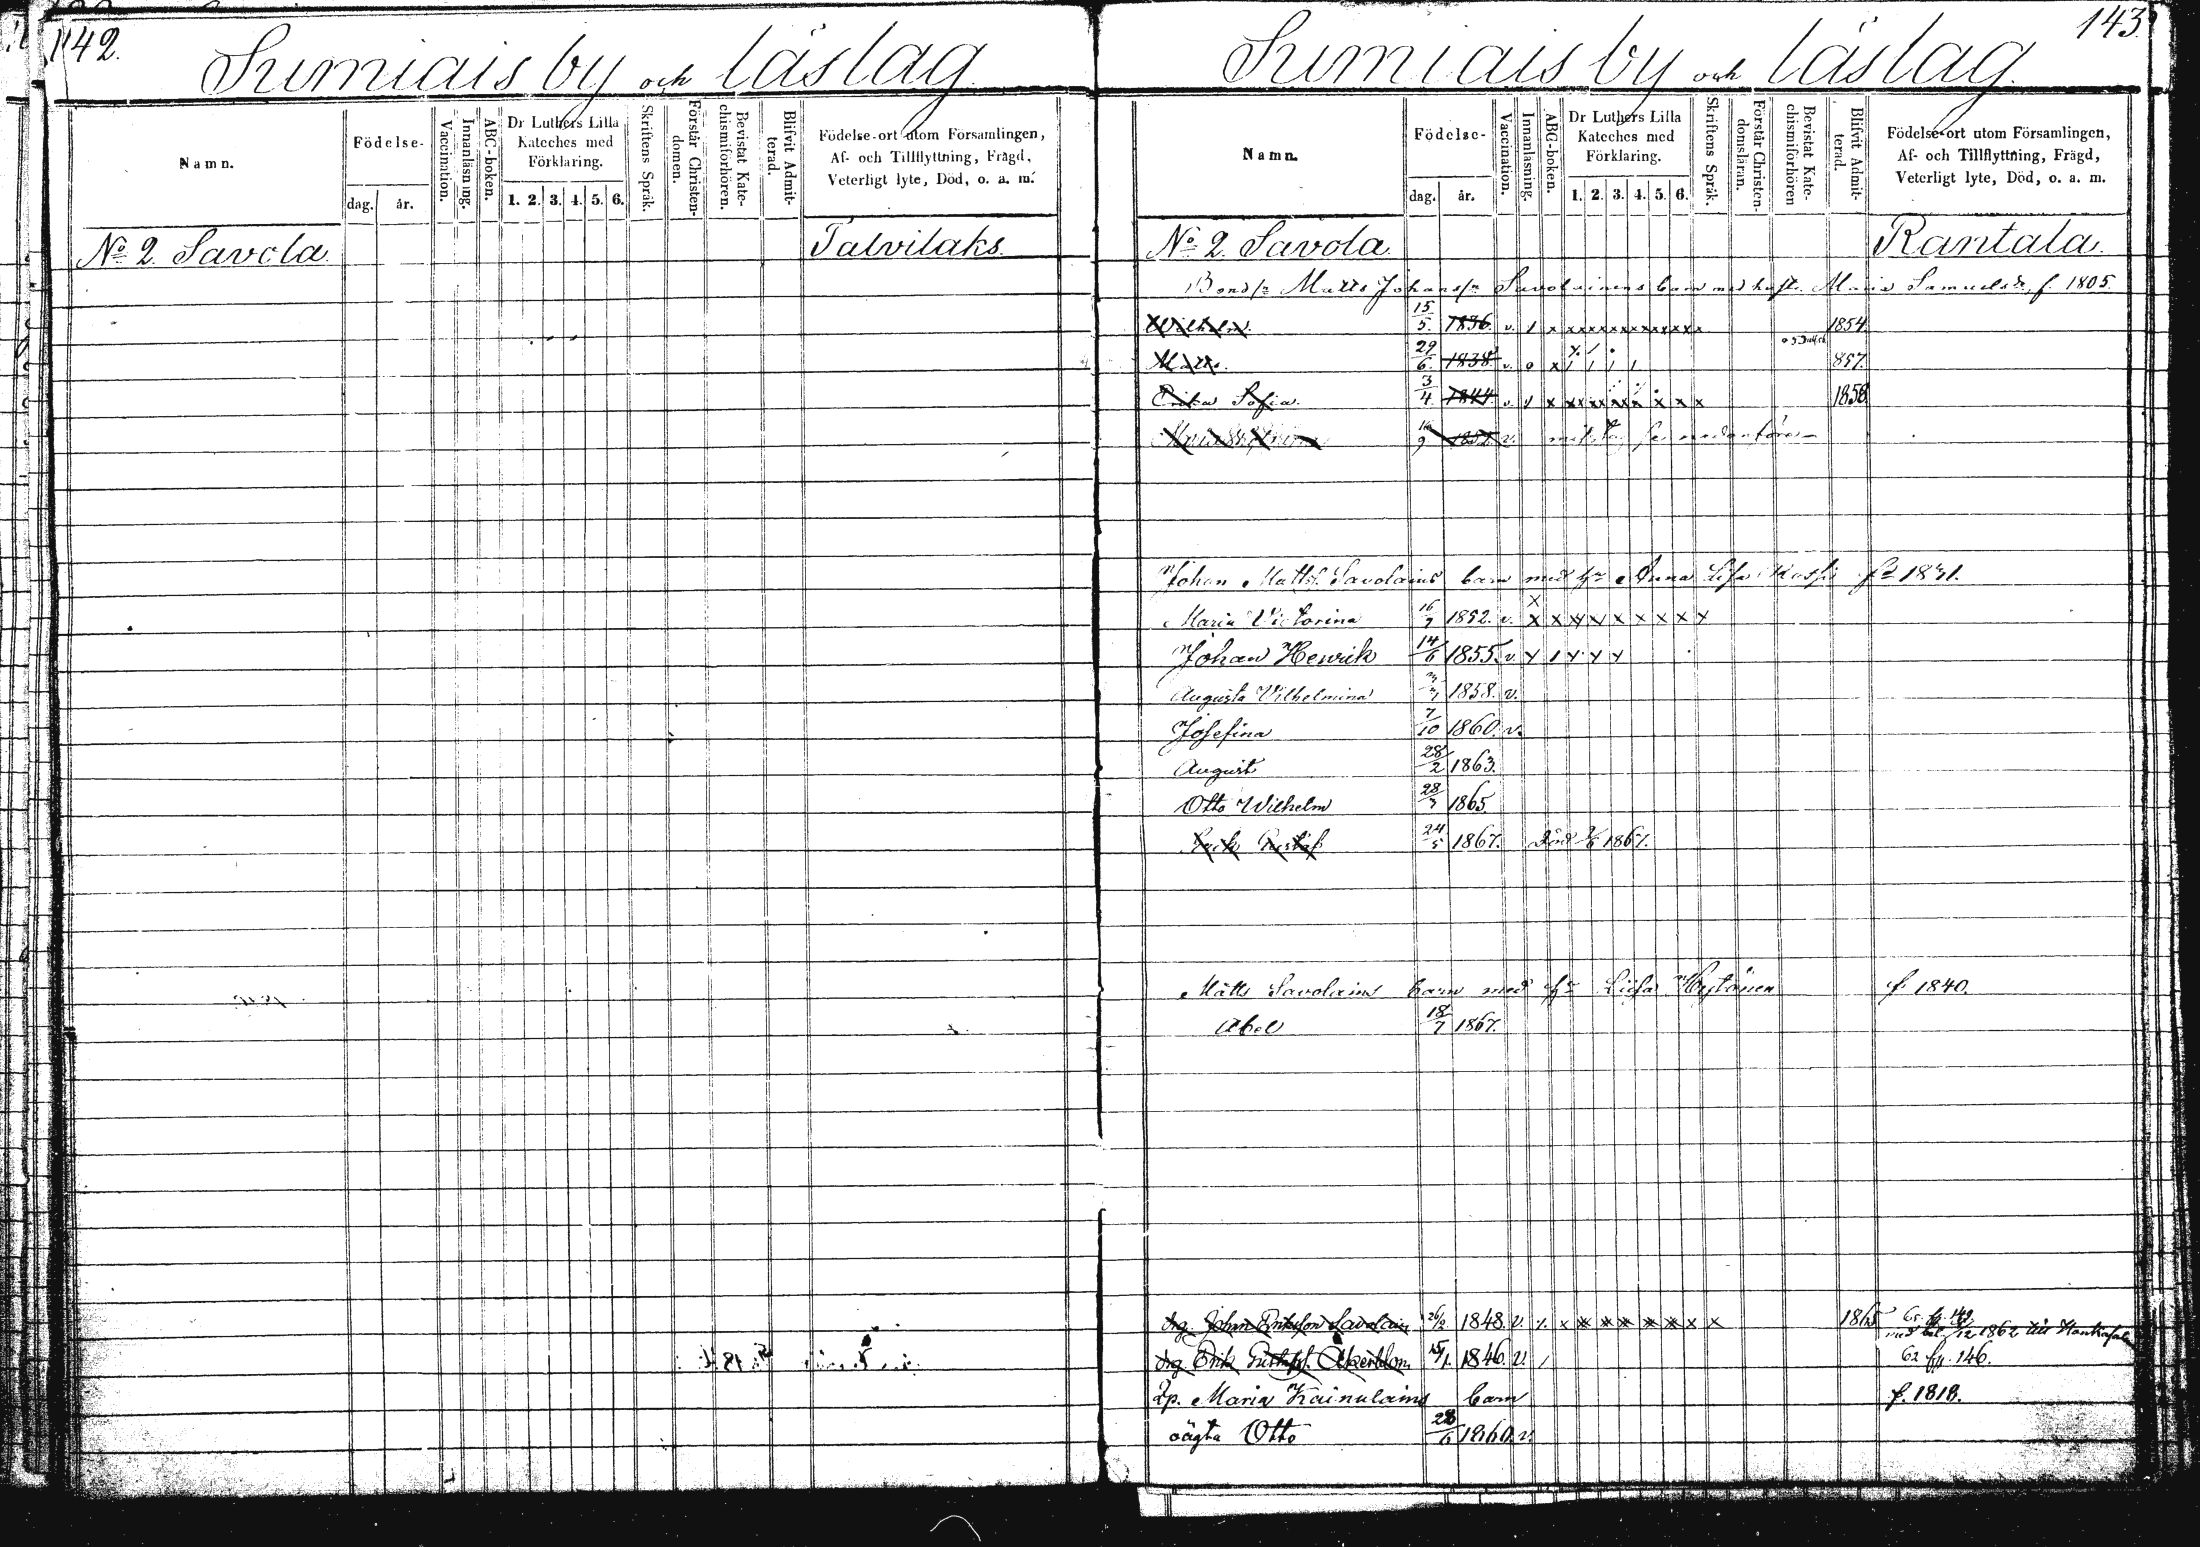 142.
Sumiais by och läslag.
Namn.
Födelse-
dag.
år.
Vaccination.
Innanläsning.
ABC-boken.
Dr Luthers Lilla
Kateches med
Förklaring.
1. 2. 3. 4. 5. 6.
Skriftens Språk.
Förstår Christen-
domen.
Bevistat Kate-
chismiförhören.
Blifvit Admit-
terad.
Födelse-ort utom Församlingen,
Af- och Tillflyttning, Frägd,
Veterligt lyte, Död, o. a. m.
No 2 Savola. Talvilaks.
143.
Sumiais by och läslag.
Namn.
Födelse-
dag.
år.
Vaccination.
Innanläsning.
ABC-boken.
Dr Luthers Lilla
Kateches med
Förklaring.
1. 2. 3. 4. 5. 6.
Skriftens Språk.
Förstår Christen-
domsläran.
Bevistat Kate-
chismiförhören
Blifvit Admit-
terad.
Födelse-ort utom Församlingen,
Af- och Tillflyttning, Frägd,
Veterligt lyte, Död, o. a. m.
No 2. Savola. Rantala.
Matts Johans Savolainens barn med Maria f. 1805.
Wilhelm. 15/5. 1836. v. 1854.
Matts. 29/6. 1838. v. 857.
Erika Sofia. 3/4. 1844. v. 1858
v.
Johan Matts. Savolains barn med Anna Lisa
Maria Victorina 16/7 1852. v. x x x x x x x x x
Johan Henrik 14/6 1855. v.
Augusta Vilhelmina 1858. v.
Josefina 7/10 1860. v.
August 28/2 1863.
Otto Wilhelm 28/3 1865
Erik Gustaf 24/5 1867. Död 1867.
Matts Savolains barn med Liisa Hytönen f. 1840.
Abel 18/7 1867.
drg. Johan Eriksson Savolain 1848. v. x x x x x x x x 1865
1862 till
drg. Erik Gustafs. Åkerblom 1846. v. 62 146.
Maria Kainulains barn f. 1818.
oägta Otto 28/6 1860. v.